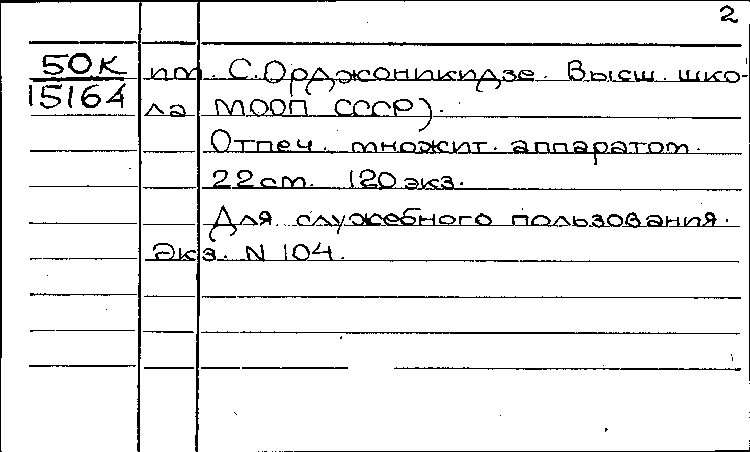 2
50К
15164
им. С. Орджоникидзе. Высш. шко-
ла МООП СССР).
Отпеч. множит. аппаратом.
22 см. 120 экз.
Для служебного пользования.
Экз. N 104.